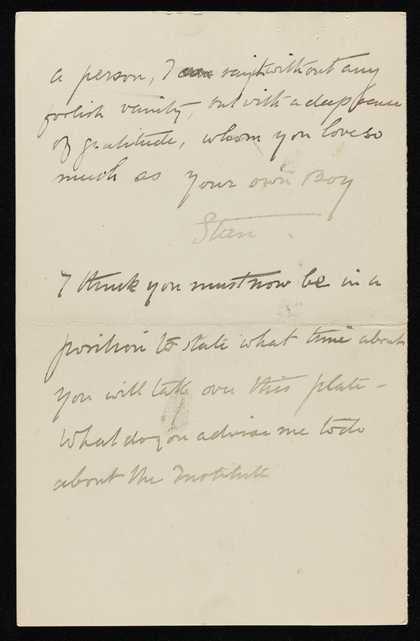 a person, I say it without any
foolish vanity, but with a deep sense
of gratitude, whom you love so
much as your own Boy
Stan.
I think you must now be in a
position to state what time about
you will take over this plate -
What do you advise me to do
about the Institute